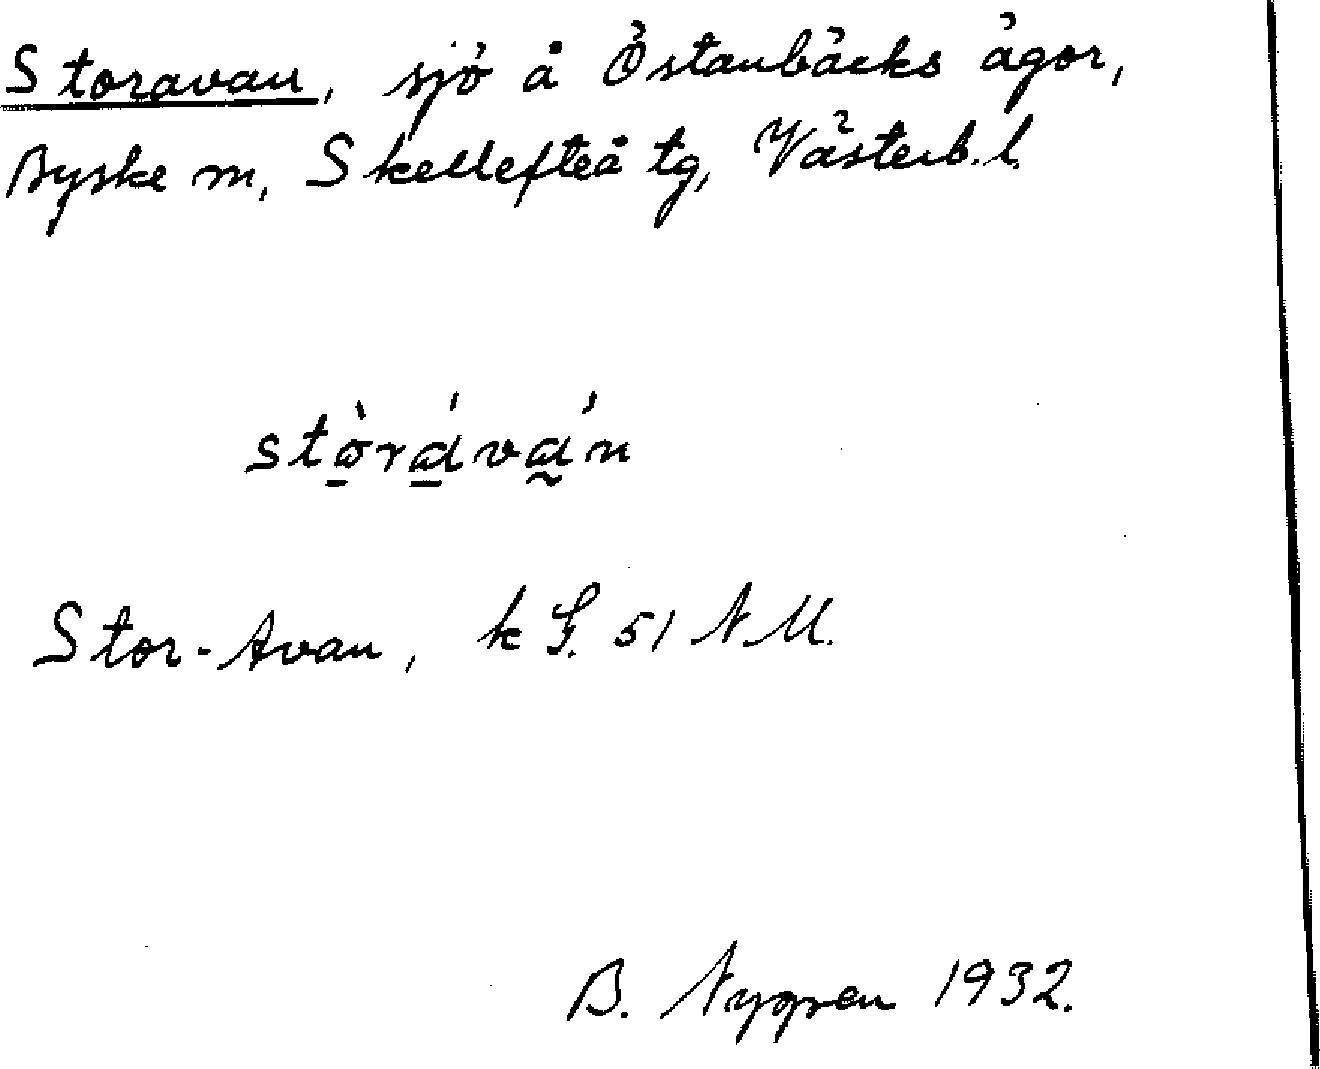 Storavan, sjö å Östanbäcks ägor,
Byske sn, Skellefteå tg, Västerb. l.
stòráván
Stor-Avan, k G. 51 NM.
B. Nygren 1932.